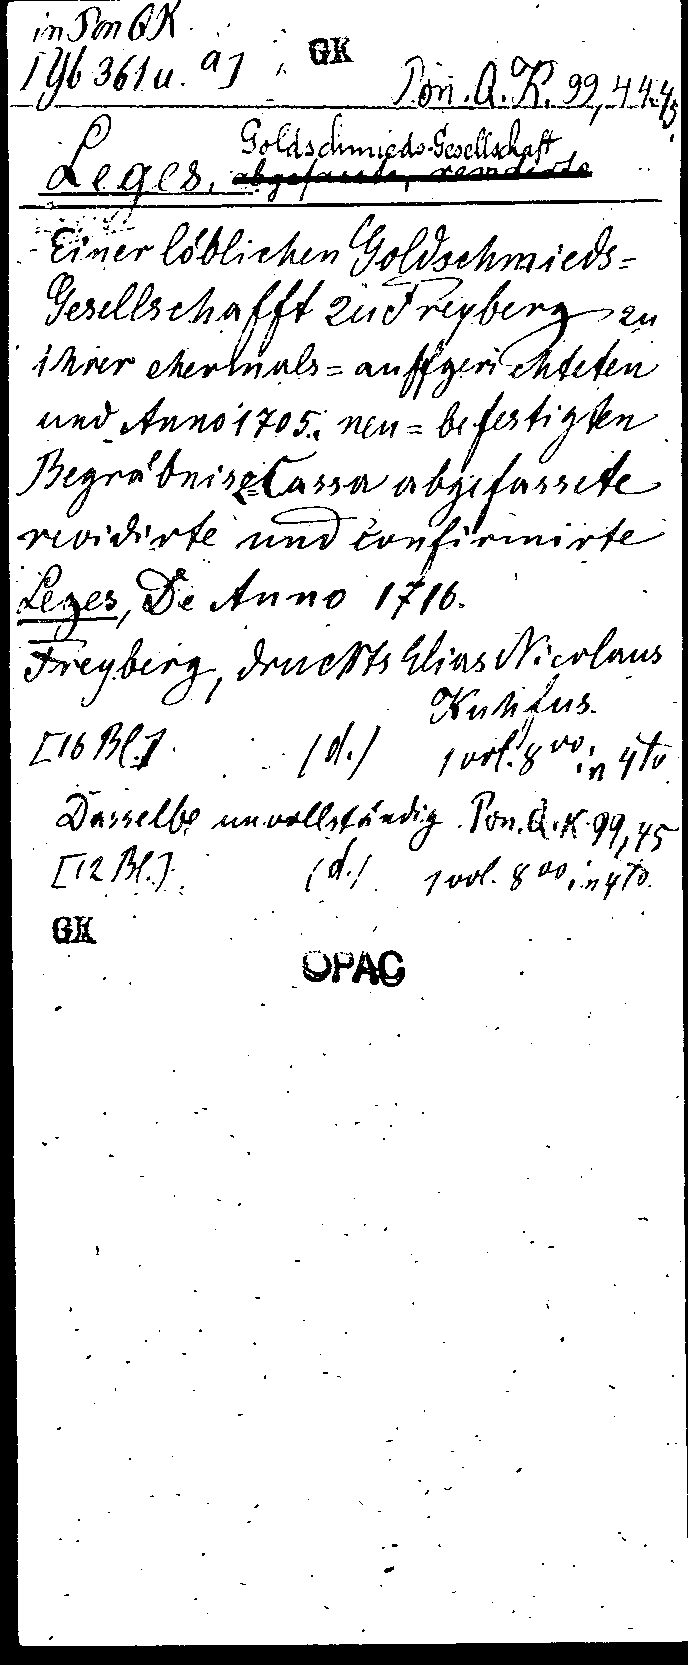 in Pon QK
[Yb 361 u. a] GK
Pon. Q. K. 99, 44.45.
Goldschmieds-Gesellschaft
Leges, abgefasste, revidirte
Einer löblichen Goldschmieds=
Gesellschafft zu Freyberg zu
ihrer ehermals=auffgerichteten
und Anno 1705. neu=befestigten
Begräbnis=Cassa abgefassete
revidirte und confirmirte
Leges, De Anno 1716.
Freyberg, druckts Elias Nicolaus
Kuhfus.
[16 Bl.] (d.) 1 vol. 8vo in 4to
Dasselbe unvollständig. Pon. Q. K. 99, 45
[12 Bl.] (d.) 1 vol. 8vo in 4to.
GK
OPAC